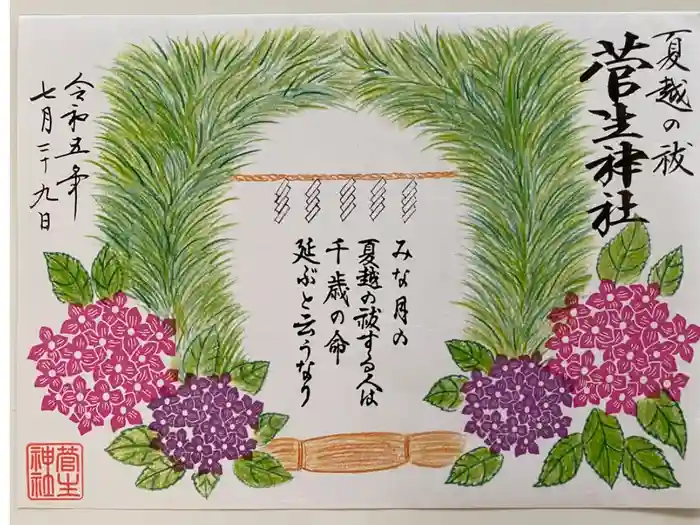 夏越の祓
菅生神社
みな月の
夏越の祓する人は
千歳の命
延ぶと云うなり
令和五年
七月二十九日
菅生
神社